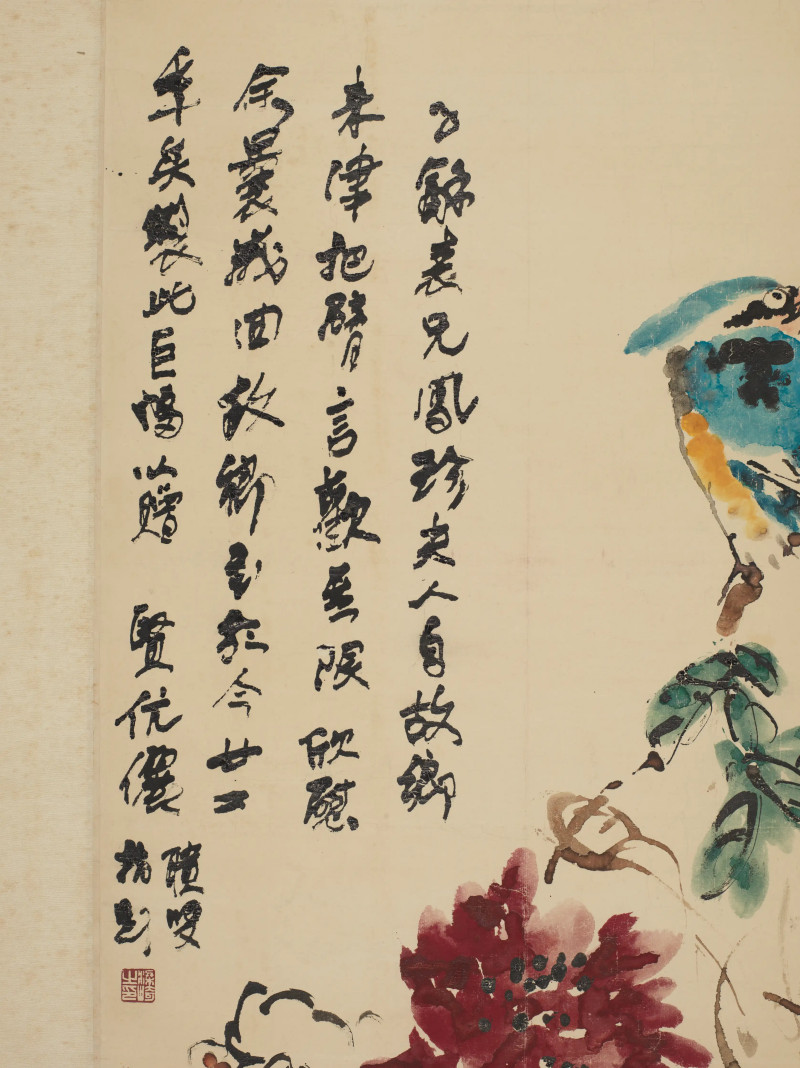 子龢表兄鳳珍夫人自故鄉
來津把臂言歡無限欣慰
余曩歲回故鄉至於今廿一
年矣製此巨幅以贈 賢伉儷
聵叟
指影